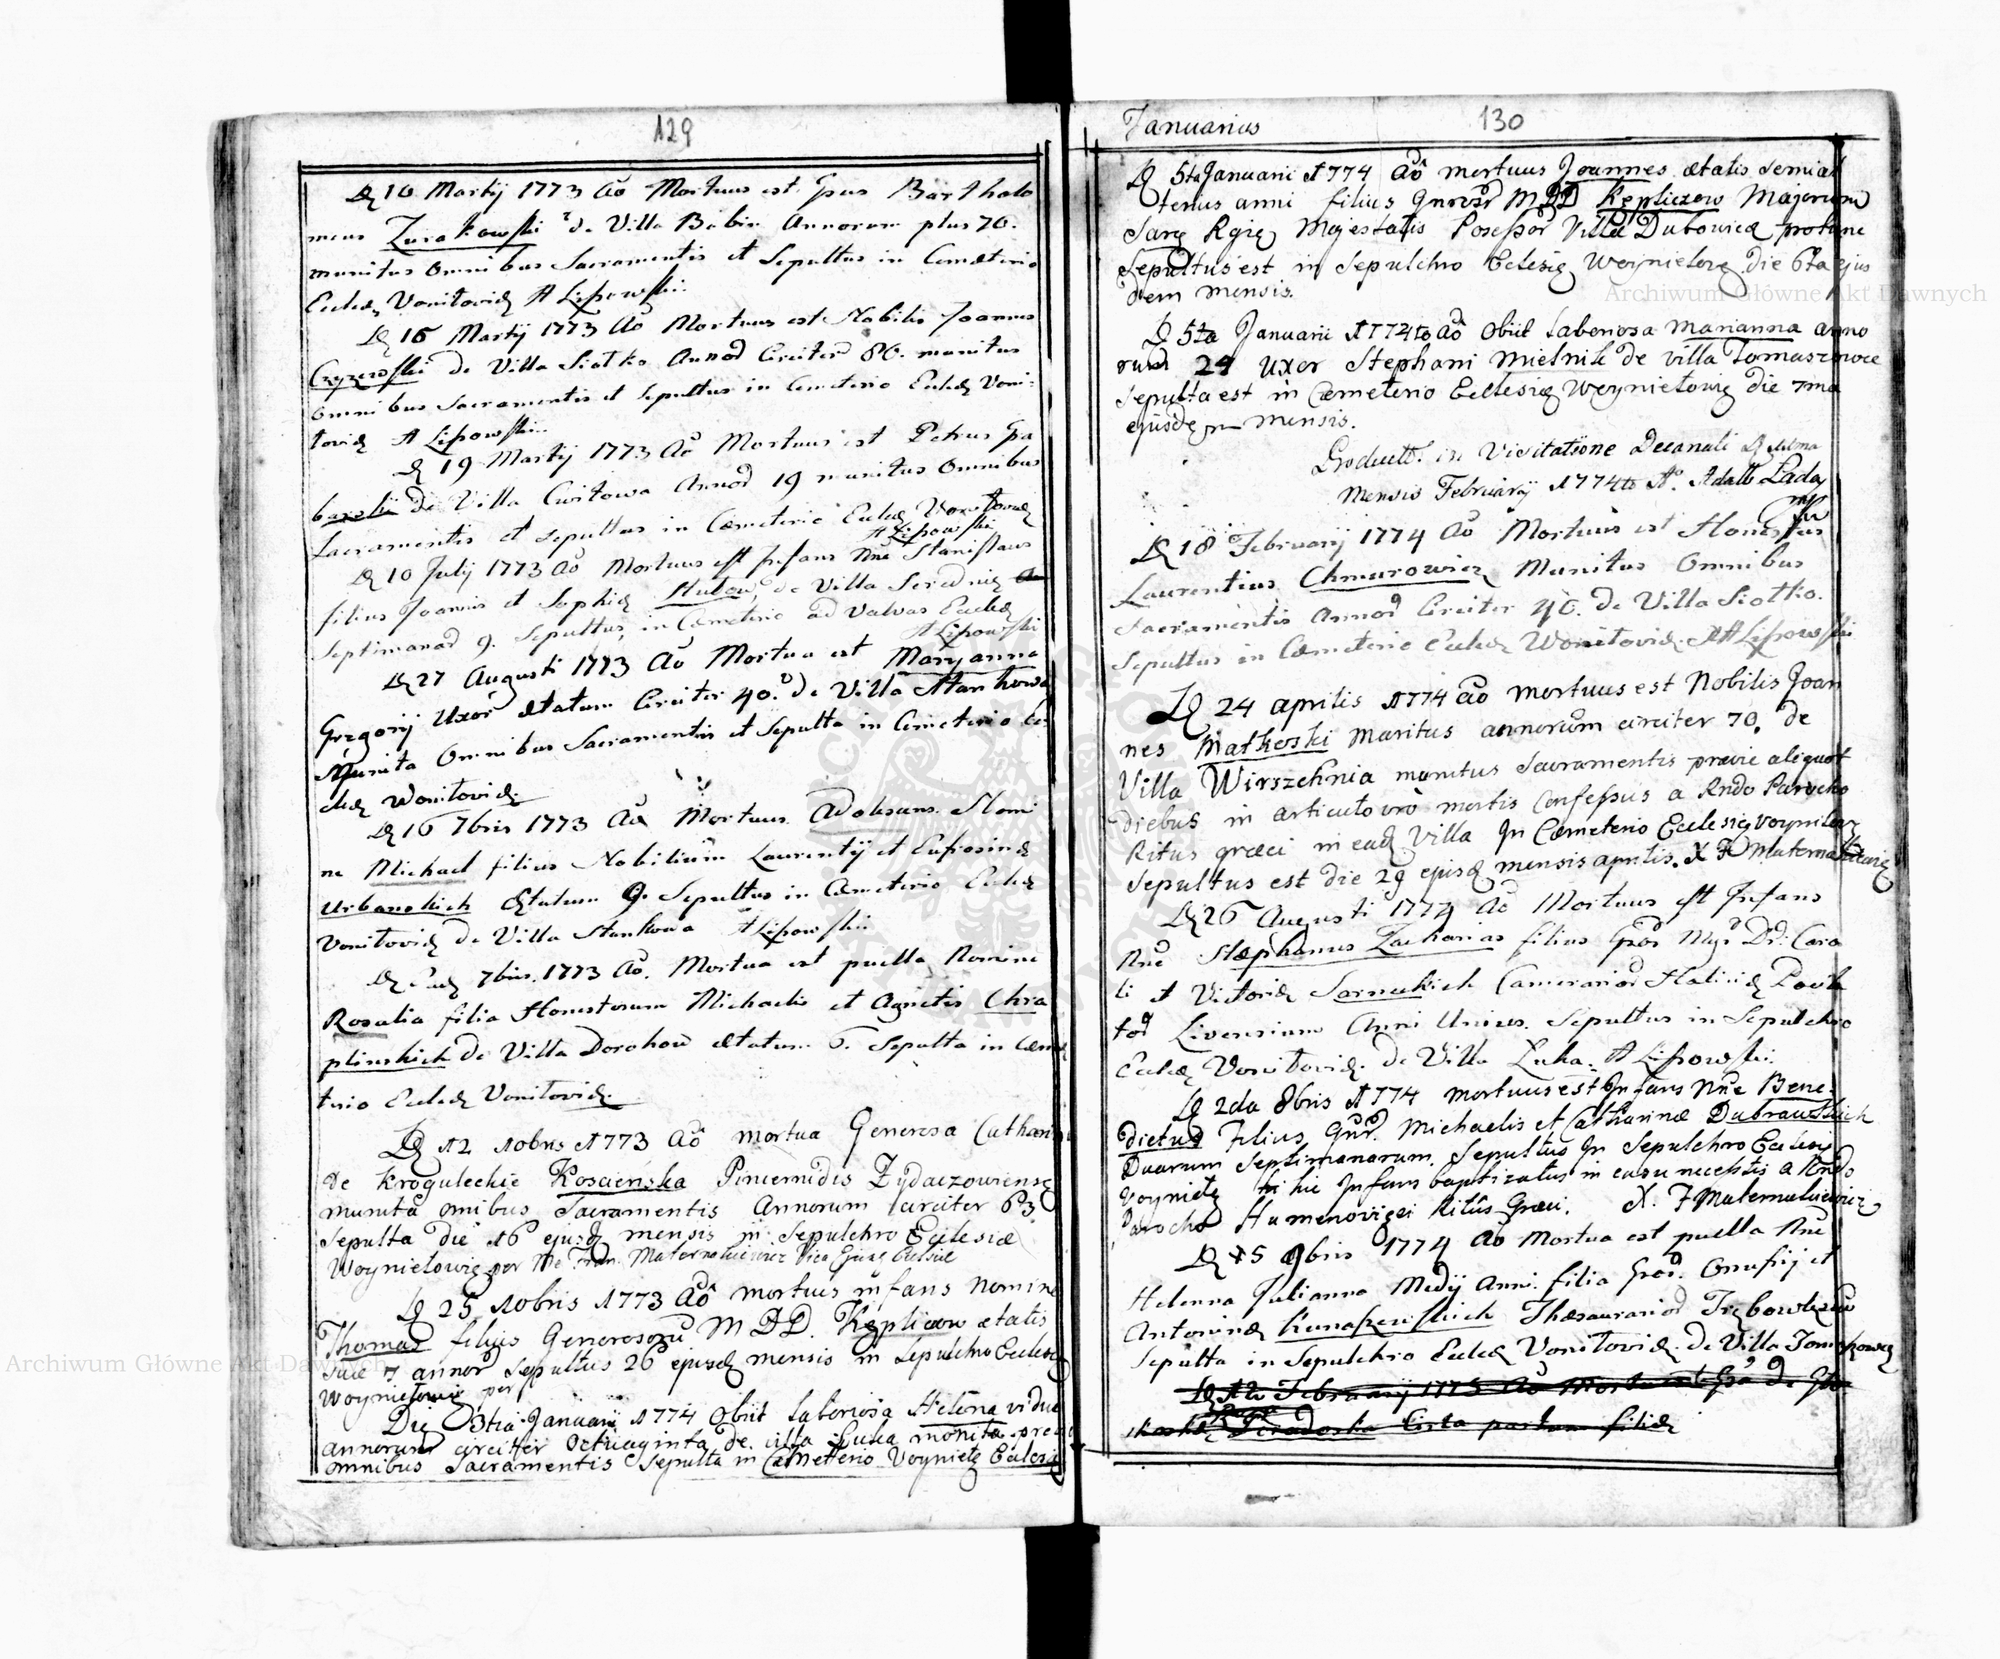 129
D 10 Martij 1773 Aô Mortuus est Gsus Bartholo
meus Zurakowski de Villa Babin Annorum plus 70.
munitus omnibus Sacramentis et Sepultus in Cemeterio
Eccleæ Vonilovie A Lipowski
D 16 Martij 1773 Aô Mortuus est Nobilis Joannes
Czyzewski de Villa Siolko Annor Circiter 80. munitus
omnibus Sacramentis et Sepultus in Cemeterio Eccleæ Voni-
lovie A Lipowski
D 19 Martij 1773 Aô Mortuus est Petrus
de Villa Cwitowa Annor 19 munitus Omnibus
Sacramentis et sepultus in Cæmeterio Eccleæ
A Lipowski
D 10 Julij 1773 Aô Mortuus est Infans Nne Stanislaus
filius Joannis et Sophiæ de Villa Serednie
Septimanar 9. Sepultus, in Cæmeterio ad Valvas Eccleæ
A Lipowski
D 27 Augusti 1773 Aô Mortua est Maryanna
Gregorij Uxor ætatum Circiter 40. de Villa Stankowa
Munita Omnibus Sacramentis et Sepulta in Cemeterio Ec
cleæ Wonilovie
D 16 7bris 1773 Aô Mortuus Adolesans Nomi
ne Michael filius Nobilium Laurentij et Eufrosinæ
Urbanskich Ætatum 9. Sepultus in Cæmeterio Eccleæ
Vonilovie de Villa Stankowa A Lipowski
D 7bris 1773 Aô. Mortua est puella Nomine
Rosalia filia Honestorum Michaelis et Agnetis Chra
plinskich de Villa Dorohow ætatum 6. Sepulta in Cæme
terio Eccleæ Vonilovie
D 12 10bris 1773 Aô mortua Generosa Catharina
de Kroguleckie Koscienska Pincernidis Zydaczowiense
munita omibus Sacramentis Annorum circiter 63
Sepulta die 16 ejusd mensis in Sepulchro Ecclesiæ
Woynielowie per Me Fran. Maternakiewicz
D 25 10bris 1773 Aô mortuus infans Nomine
Thomas filius Generosorū M DD. Kepliczow ætatis
suæ 7 annor Sepultus 26 ejusd mensis in Sepulchro Ecclesiæ
Woynielowie per
Die 3tia Januarij 1774 Obiit laboriosa Helena vidua
annorum circiter Octuaginta de villa Luka monita
omnibus Sacramentis Sepulta in Cæmeterio Woyniele Ecclesiæ
Januarius
130
D 5ta Januarii 1774 Aô mortuus Joannes ætatis semial
tenus anni filius Gnrosr M DD Kepliczow Majorum
Sacre Rgie Majestatis Posessor Villæ Dubowica
Sepultus est in Sepulchro Eclesie Woynielowe die 6ta ejus
dem mensis.
D 5ta Januarii 1774to aô obiit laboriosa Marianna anno
rum 24 uxor Stephani Mielnik de villa Tomaszowce
Sepulta est in Cæmeterio Ecclesiæ Woynielowie die 7ma
ejusdem mensis.
Product. in Visitatione Decanali
Mensis Februarij 1774to Aº. Adalb Lada
D 18 Februarij 1774 Aô Mortuus est Honestus
Laurentius Chmurowicz Munitus Omnibus
Sacramentis Annor Circiter 40. de Villa Siolko.
Sepultus in Cæmeterio Eccleæ Wonilovie A Lipowski
D 24 aprilis 1774 aô mortuus est Nobilis Joan
nes Matkoski Maritus annorum circiter 70. de
Villa Wirszchnia munitus Sacramentis prævie aliquot
diebus in articulo vro mortis Confessus a Rndo Parocho
Ritus græci in ead Villa In Cæmeterio Ecclesie
Sepultus est die 29 ejusd mensis aprilis. X F Maternakiewicz
D 26 Augusti 1774 Aô Mortuus est Infans
Nne Stephanus Zacharias filius Gror Mgr Dr: Caro
li et Victoriæ Sarnickich Camerarior Haliciæ
Livensium Anni Unius. Sepultus in Sepulchro
Eccleæ Vonilovie. de Villa Luka. A Lipowski
D 2da 8bris 1774 mortuus est Infans Nne Bene
dictus Filius Gnr. Michaelis et Catharinæ Dubrawskich
Duarum Septimanarum. Sepultus In Sepulchro Ecclesie
Woyniele hic Infans baptizatus in casu necessitis a Rndo
Parocho Humenovigei Ritūs Græci. X. F Maternakiewicz
D 15 9bris 1774 Aô Mortua est puella Nne
Helenna Julianna Medij Anni. filia Gror. Onufrij et
Antoninæ Kunaszewskich Thesaurarior Trębowlæ
Sepulta in Sepulchro Eccleæ Vonilovie. de Villa Tomaszowce
D 12 Februarij 1775 Aô Mortua est
partum filiæ
Archiwum Główne Akt Dawnych
Archiwum Główne Akt Dawnych